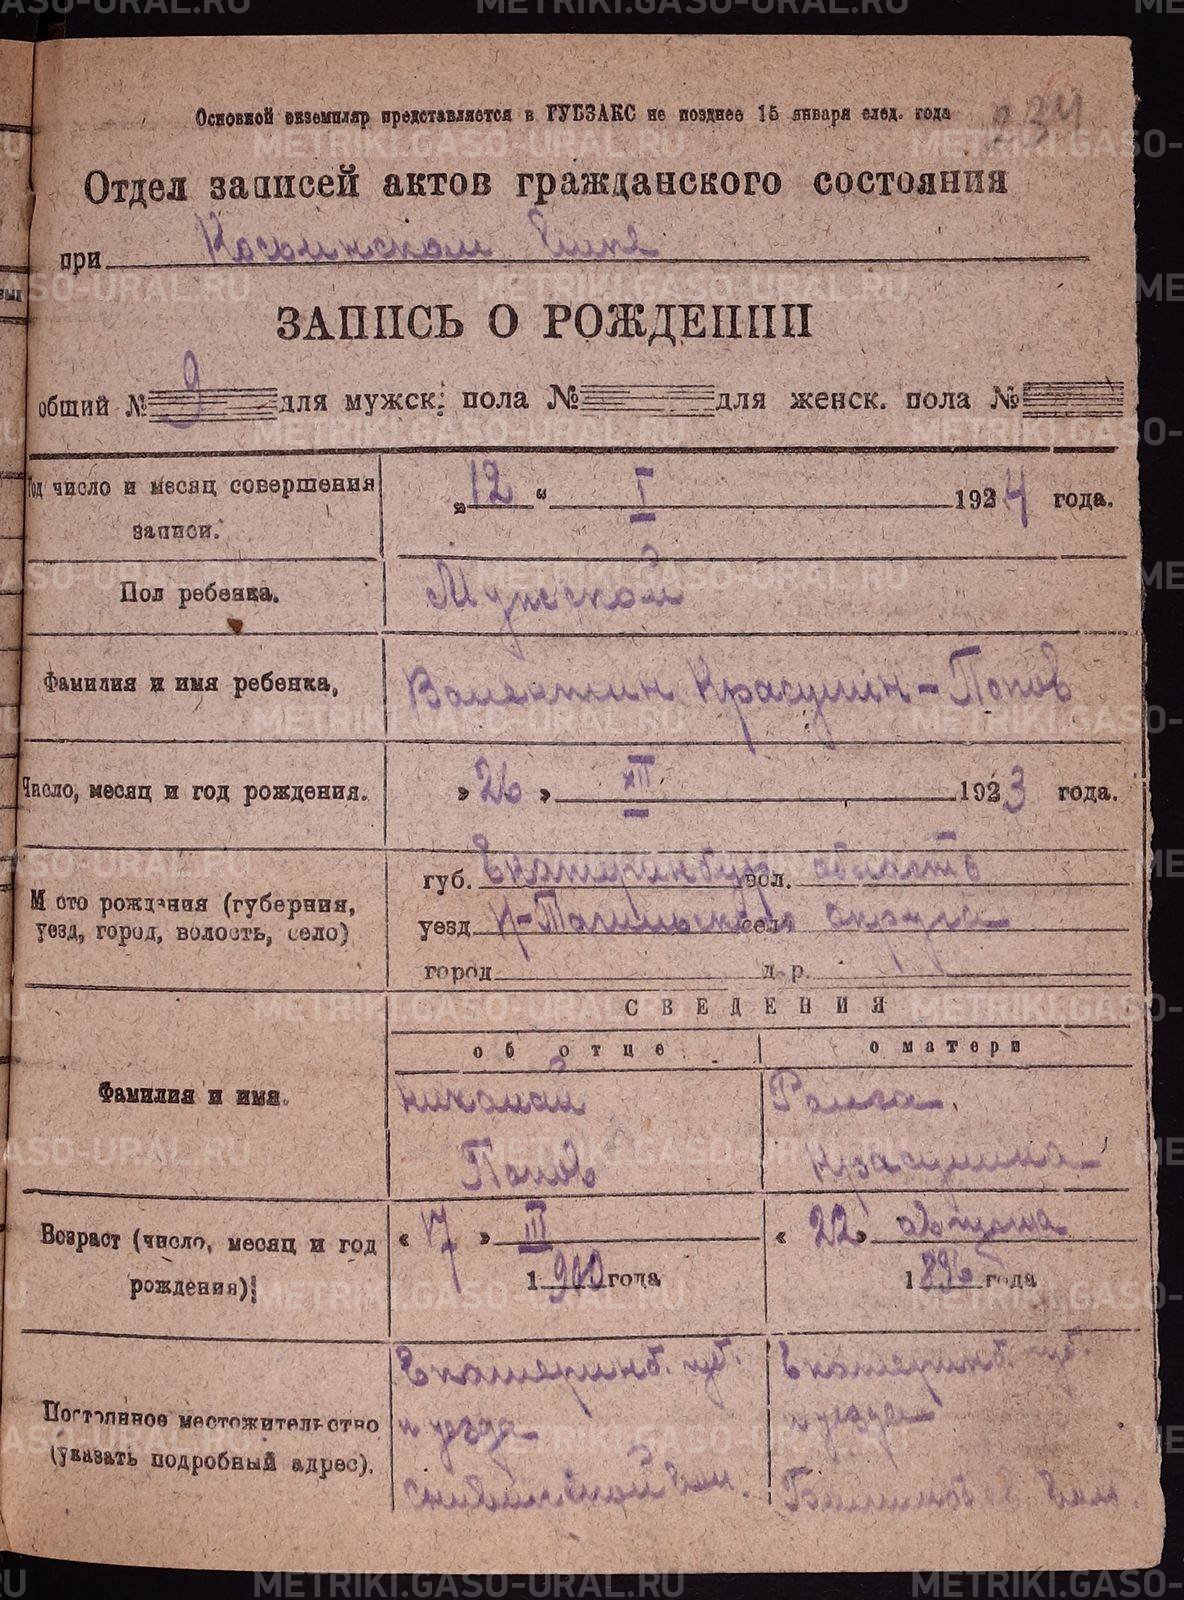 Основной екземпляр представляется в ГУБЗАКС не позднее 15 января след. года
234
Отдел записей актов гражданского состояния
при
ЗАПИСЬ О РОЖДЕНИИ
общий № 9 для мужск: пола № для женск. пола №
Год число и месяц совершения записи.
„12“ I 1924 года.
Пол ребенка.
Мужской
Фамилия и имя ребенка,
Валентин Красулин-Попов
Число, месяц и год рождения.
„26„ XII 1923 года.
Место рождения (губерния, уезд, город, волость, село)
губ. Екатеринбург вол. область
уезд Н-Тагильского село округа
город дер.
СВЕДЕНИЯ
об отце
о матери
Фамилия и имя.
Николай
Попов
Раиса
Красулина
Возраст (число, месяц и год рождения)
«17» III
1900 года
«22» августа
1896 года
Постоянное местожительство (указать подробный адрес).
Екатеринб. губ.
и уезда
вол.
Екатеринб. губ.
и уезда
вол.
METRIKI.GASO-URAL.RU